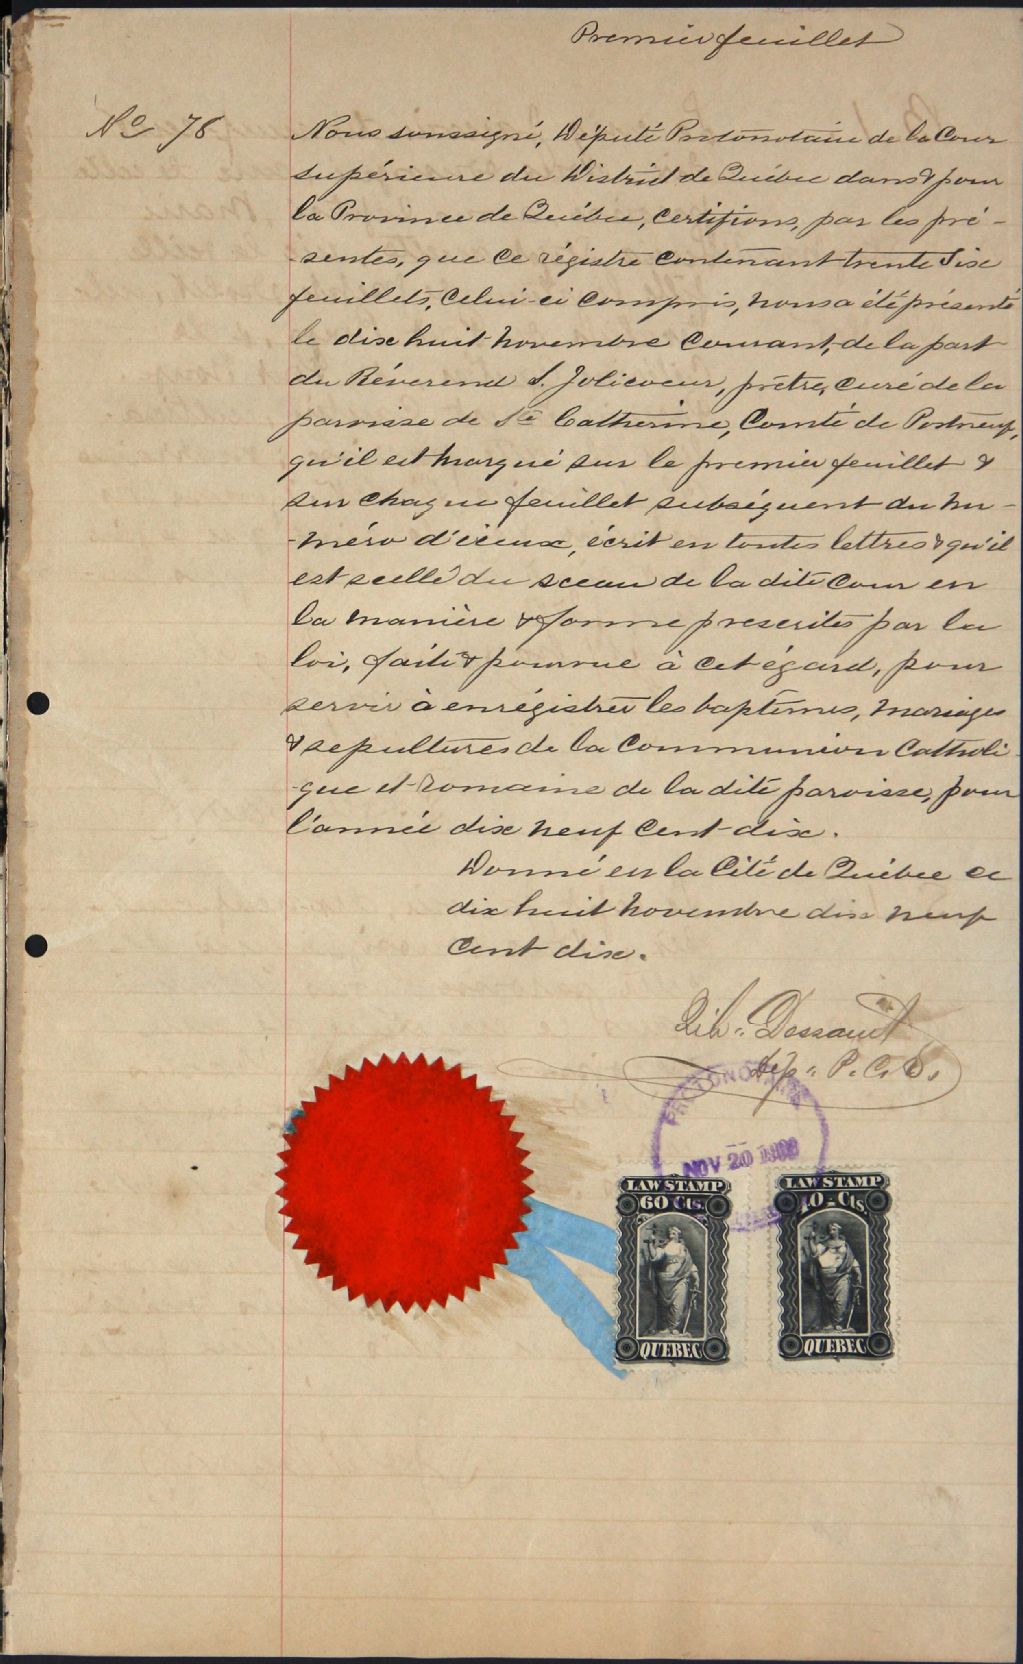 Premier feuillet
No 78
Nous soussigné, Député Protonotaire de la Cour
supérieure du District de Québec dans & pour
la Province de Québec, certifions, par les pré-
-sentes, que ce régistre contenant trente six
feuillets, celui-ci compris, nous a été présenté
le dix huit novembre courant, de la part
du Révérend S. Jolicoeur, prêtre, curé de la
paroisse de Ste Catherine, Comté de Portneuf,
qu'il est marqué sur le premier feuillet &
sur chaque feuillet subséquent du nu-
-méro d'iceux, écrit en toutes lettres & qu'il
est scellé du sceau de la dite Cour en
la manière & forme prescrites par la
loi, faite & pourvue à cet égard, pour
servir à enrégistrer les baptêmes, mariages
& sepultures de la Communion Catholi-
-que et romaine de la dite paroisse, pour
l'année dix neuf cent dix.
Donné en la Cité de Québec ce
dix huit novembre dix neuf
cent dix.
Dép. P.C.S.
PROTONOTAIRE
NOV 20
LAW STAMP
60 Cts.
QUEBEC
LAW STAMP
10-Cts.
QUEBEC